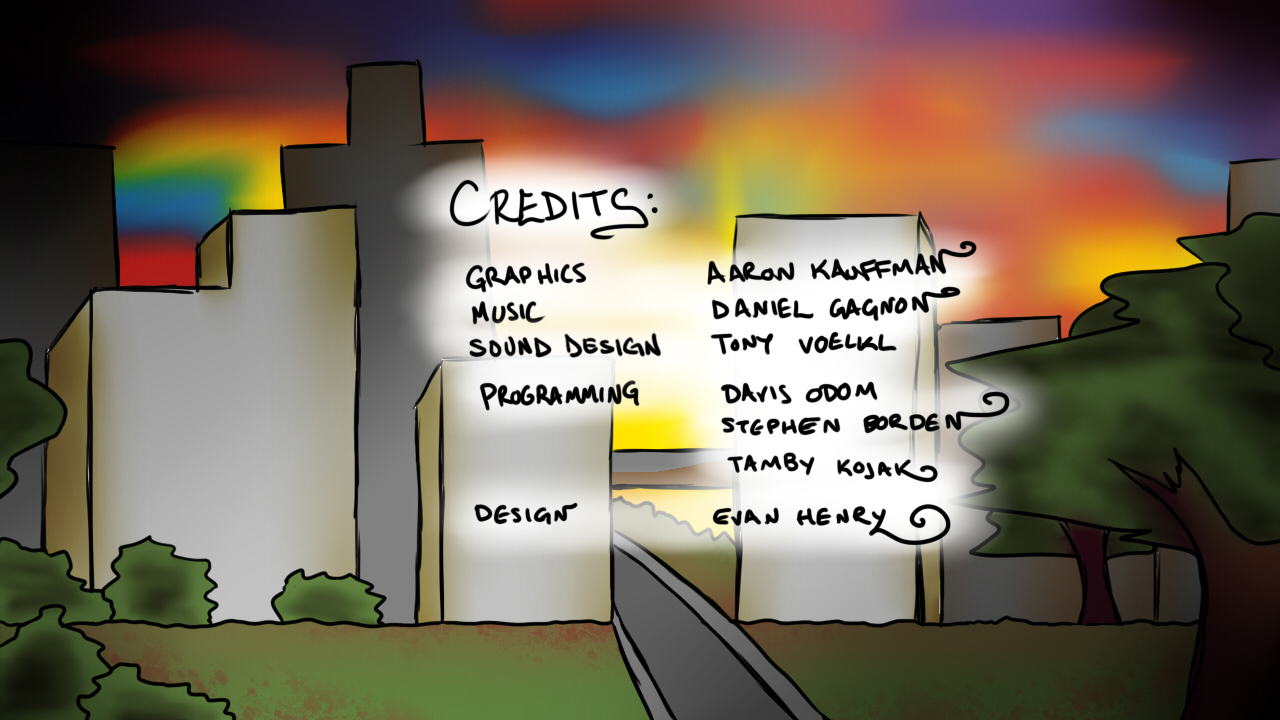 CREDITS:
GRAPHICS AARON KAUFFMAN
MUSIC DANIEL GAGNON
SOUND DESIGN TONY VOELKL
PROGRAMMING DAVIS ODOM
STEPHEN BORDEN
TAMBY KOJAK
DESIGN EVAN HENRY